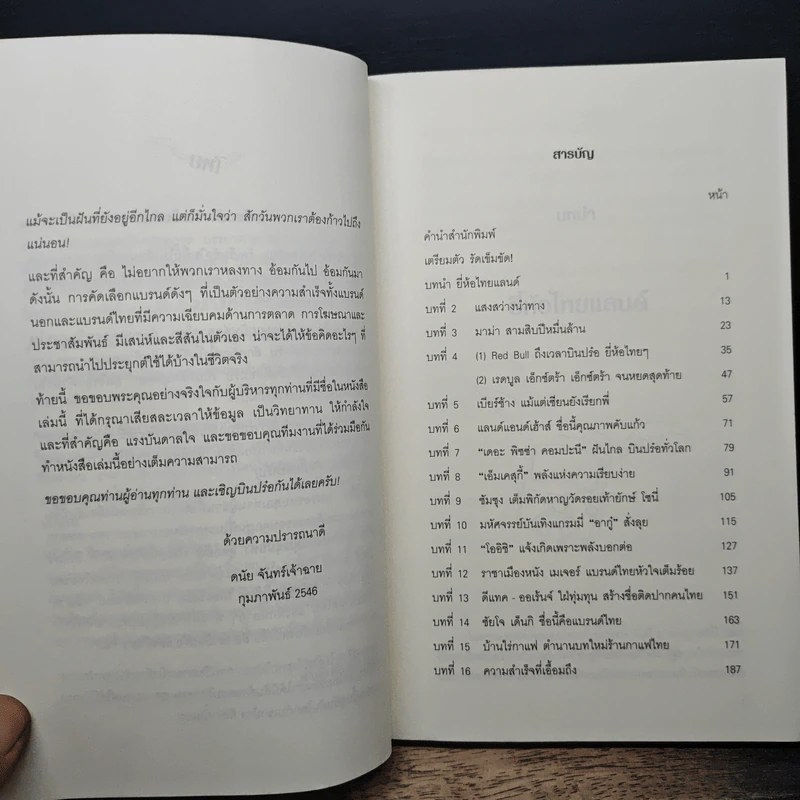 แม้จะเป็นฝันที่ยังอยู่อีกไกล แต่ก็มั่นใจว่า สักวันพวกเราต้องก้าวไปถึง
แน่นอน!
และที่สำคัญ คือ ไม่อยากให้พวกเราหลงทาง อ้อมกันไป อ้อมกันมา
ดังนั้น การคัดเลือกแบรนด์ดังๆ ที่เป็นตัวอย่างความสำเร็จทั้งแบรนด์
นอกและแบรนด์ไทยที่มีความเฉียบคมด้านการตลาด การโฆษณาและ
ประชาสัมพันธ์ มีเสน่ห์และสีสันในตัวเอง น่าจะได้ให้ข้อคิดอะไรๆ ที่
สามารถนำไปประยุกต์ใช้ได้บ้างในชีวิตจริง
ท้ายนี้ ขอขอบพระคุณอย่างจริงใจกับผู้บริหารทุกท่านที่มีชื่อในหนังสือ
เล่มนี้ ที่ได้กรุณาเสียสละเวลาให้ข้อมูล เป็นวิทยาทาน ให้กำลังใจ
และที่สำคัญคือ แรงบันดาลใจ และขอขอบคุณทีมงานที่ได้ร่วมมือกัน
ทำหนังสือเล่มนี้อย่างเต็มความสามารถ
ขอขอบคุณท่านผู้อ่านทุกท่าน และเชิญบินปร๋อกันได้เลยครับ!
ด้วยความปรารถนาดี
ดนัย จันทร์เจ้าฉาย
กุมภาพันธ์ 2546
สารบัญ
หน้า
คำนำสำนักพิมพ์
เตรียมตัว รัดเข็มขัด!
บทนำ ยี่ห้อไทยแลนด์ 1
บทที่ 2 แสงสว่างนำทาง 13
บทที่ 3 มาม่า สามสิบปีหมื่นล้าน 23
บทที่ 4 (1) Red Bull ถึงเวลาบินปร๋อ ยี่ห้อไทยๆ 35
(2) เรดบูล เอ็กซ์ตร้า เอ็กซ์ตร้า จนหยดสุดท้าย 47
บทที่ 5 เบียร์ช้าง แม้แต่เซียนยังเรียกพี่ 57
บทที่ 6 แลนด์แอนด์เฮ้าส์ ชื่อนี้คุณภาพคับแก้ว 71
บทที่ 7 "เดอะ พิซซ่า คอมปะนี" ฝันไกล บินปร๋อทั่วโลก 79
บทที่ 8 "เอ็มเคสุกี้" พลังแห่งความเรียบง่าย 91
บทที่ 9 ซัมซุง เต็มพิกัดหาญวัดรอยเท้ายักษ์ โซนี่ 105
บทที่ 10 มหัศจรรย์บันเทิงแกรมมี่ "อากู๋" สั่งลุย 115
บทที่ 11 "โออิชิ" แจ้งเกิดเพราะพลังบอกต่อ 127
บทที่ 12 ราชาเมืองหนัง เมเจอร์ แบรนด์ไทยหัวใจเต็มร้อย 137
บทที่ 13 ดีแทค - ออเร้นจ์ ใฝ่ทุ่มทุน สร้างชื่อติดปากคนไทย 151
บทที่ 14 ซัยโจ เด็นกิ ชื่อนี้คือแบรนด์ไทย 163
บทที่ 15 บ้านไร่กาแฟ ตำนานบทใหม่ร้านกาแฟไทย 171
บทที่ 16 ความสำเร็จที่เอื้อมถึง 187